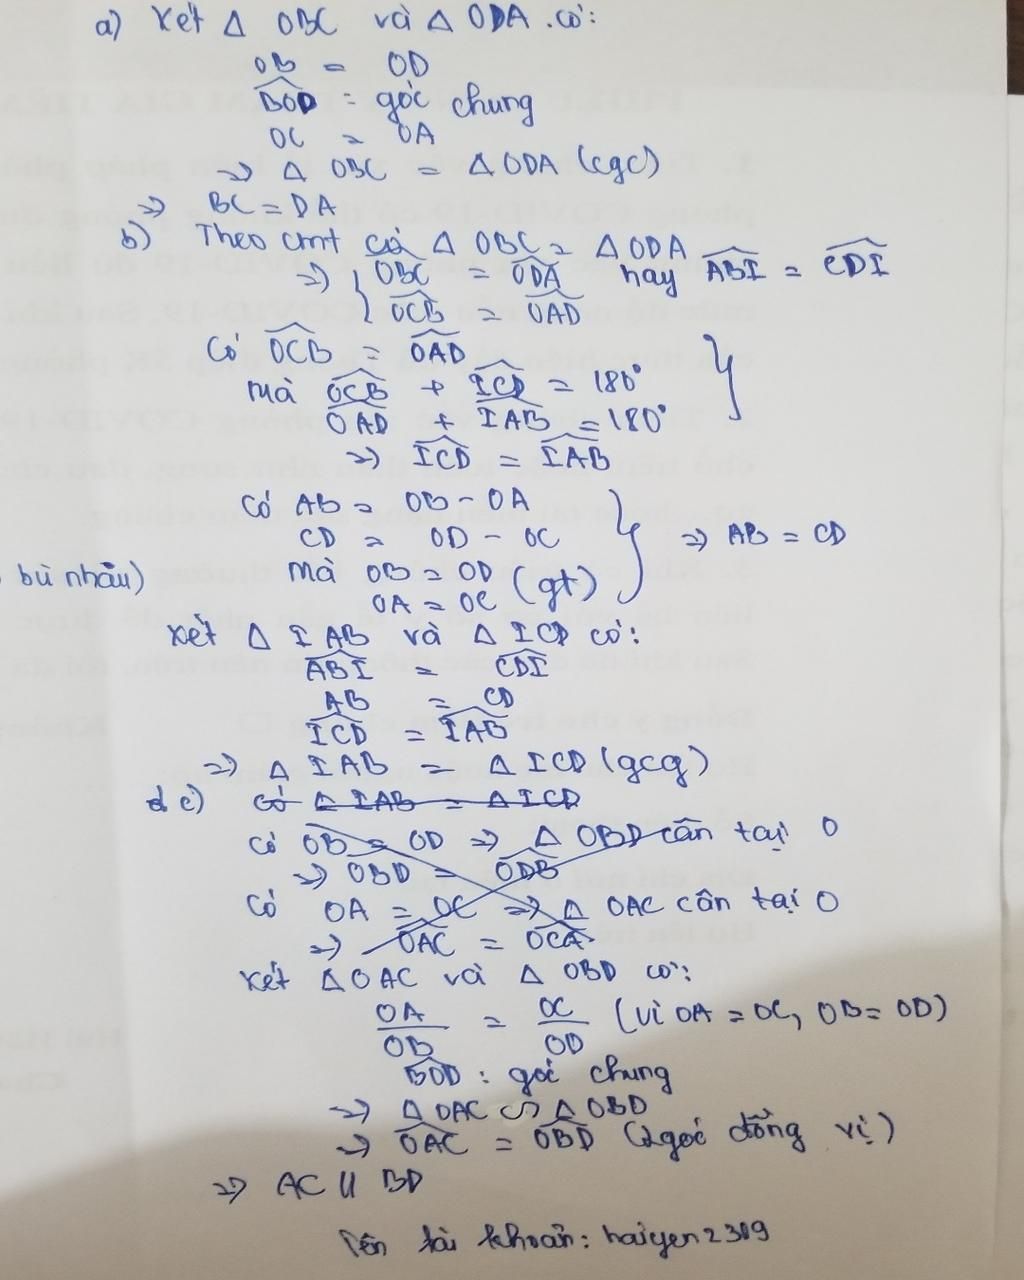 a) Xét Δ OBC và Δ ODA có:
OB = OD
BOD = góc chung
OC = OA
=> Δ OBC = Δ ODA (cgc)
=> BC = DA
b) Theo cmt có Δ OBC = Δ ODA
=> { OBC = ODA hay ABI = CDI
OCB = OAD
Có OCB = OAD }
mà OCB + ICD = 180°
OAD + IAB = 180°
=> ICD = IAB
Có AB = OB - OA }
CD = OD - OC => AB = CD
bù nhau) mà OB = OD (gt)
OA = OC
Xét Δ IAB và Δ ICD có:
ABI = CDI
AB = CD
ICD = IAB
=> Δ IAB = Δ ICD (gcg)
c) có Δ IAB = Δ ICD
có OB = OD => Δ OBD cân tại O
=> OBD = ODB
Có OA = OC => Δ OAC cân tại O
=> OAC = OCA
Xét Δ OAC và Δ OBD có:
OA/OB = OC/OD (vì OA = OC, OB = OD)
BOD : góc chung
=> Δ OAC ∽ Δ OBD
=> OAC = OBD (2 góc đồng vị)
=> AC // BD
Tên tài khoản: haiyen2309